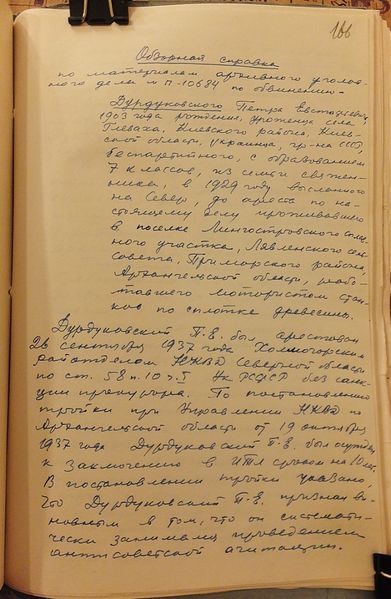 166
Обзорная справка
по материалам архивного уголов-
ного дела № П-10684 по обвинению -
Дурдуковского Петра Евстафьевича
1903 года рождения, уроженца села
Глеваха, Киевского района, Киев-
ской области, украинца, гр-на СССР,
беспартийного, с образованием
7 классов, из семьи священ-
ника, в 1929 году высланного
на Север, до ареста по на-
стоящему делу проживавшего
в поселке Лингостровского сплав-
ного участка, Лявленского сель-
совета, Приморского района,
Архангельской области, рабо-
тавшего мотористом стан-
ков по сплотке древесины.
Дурдуковский П.Е. был арестован
26 сентября 1937 года Холмогорским
райотделом НКВД Северной области
по ст. 58 п. 10 ч. I УК РСФСР без сан-
кции прокурора. По постановлению
тройки при Управлении НКВД по
Архангельской области от 19 октября
1937 года Дурдуковский П.Е. был осужден
к заключению в ИТЛ сроком на 10 лет.
В постановлении тройки указано,
что Дурдуковский П.Е. признан ви-
новным в том, что он системати-
чески занимался проведением
антисоветской агитации.